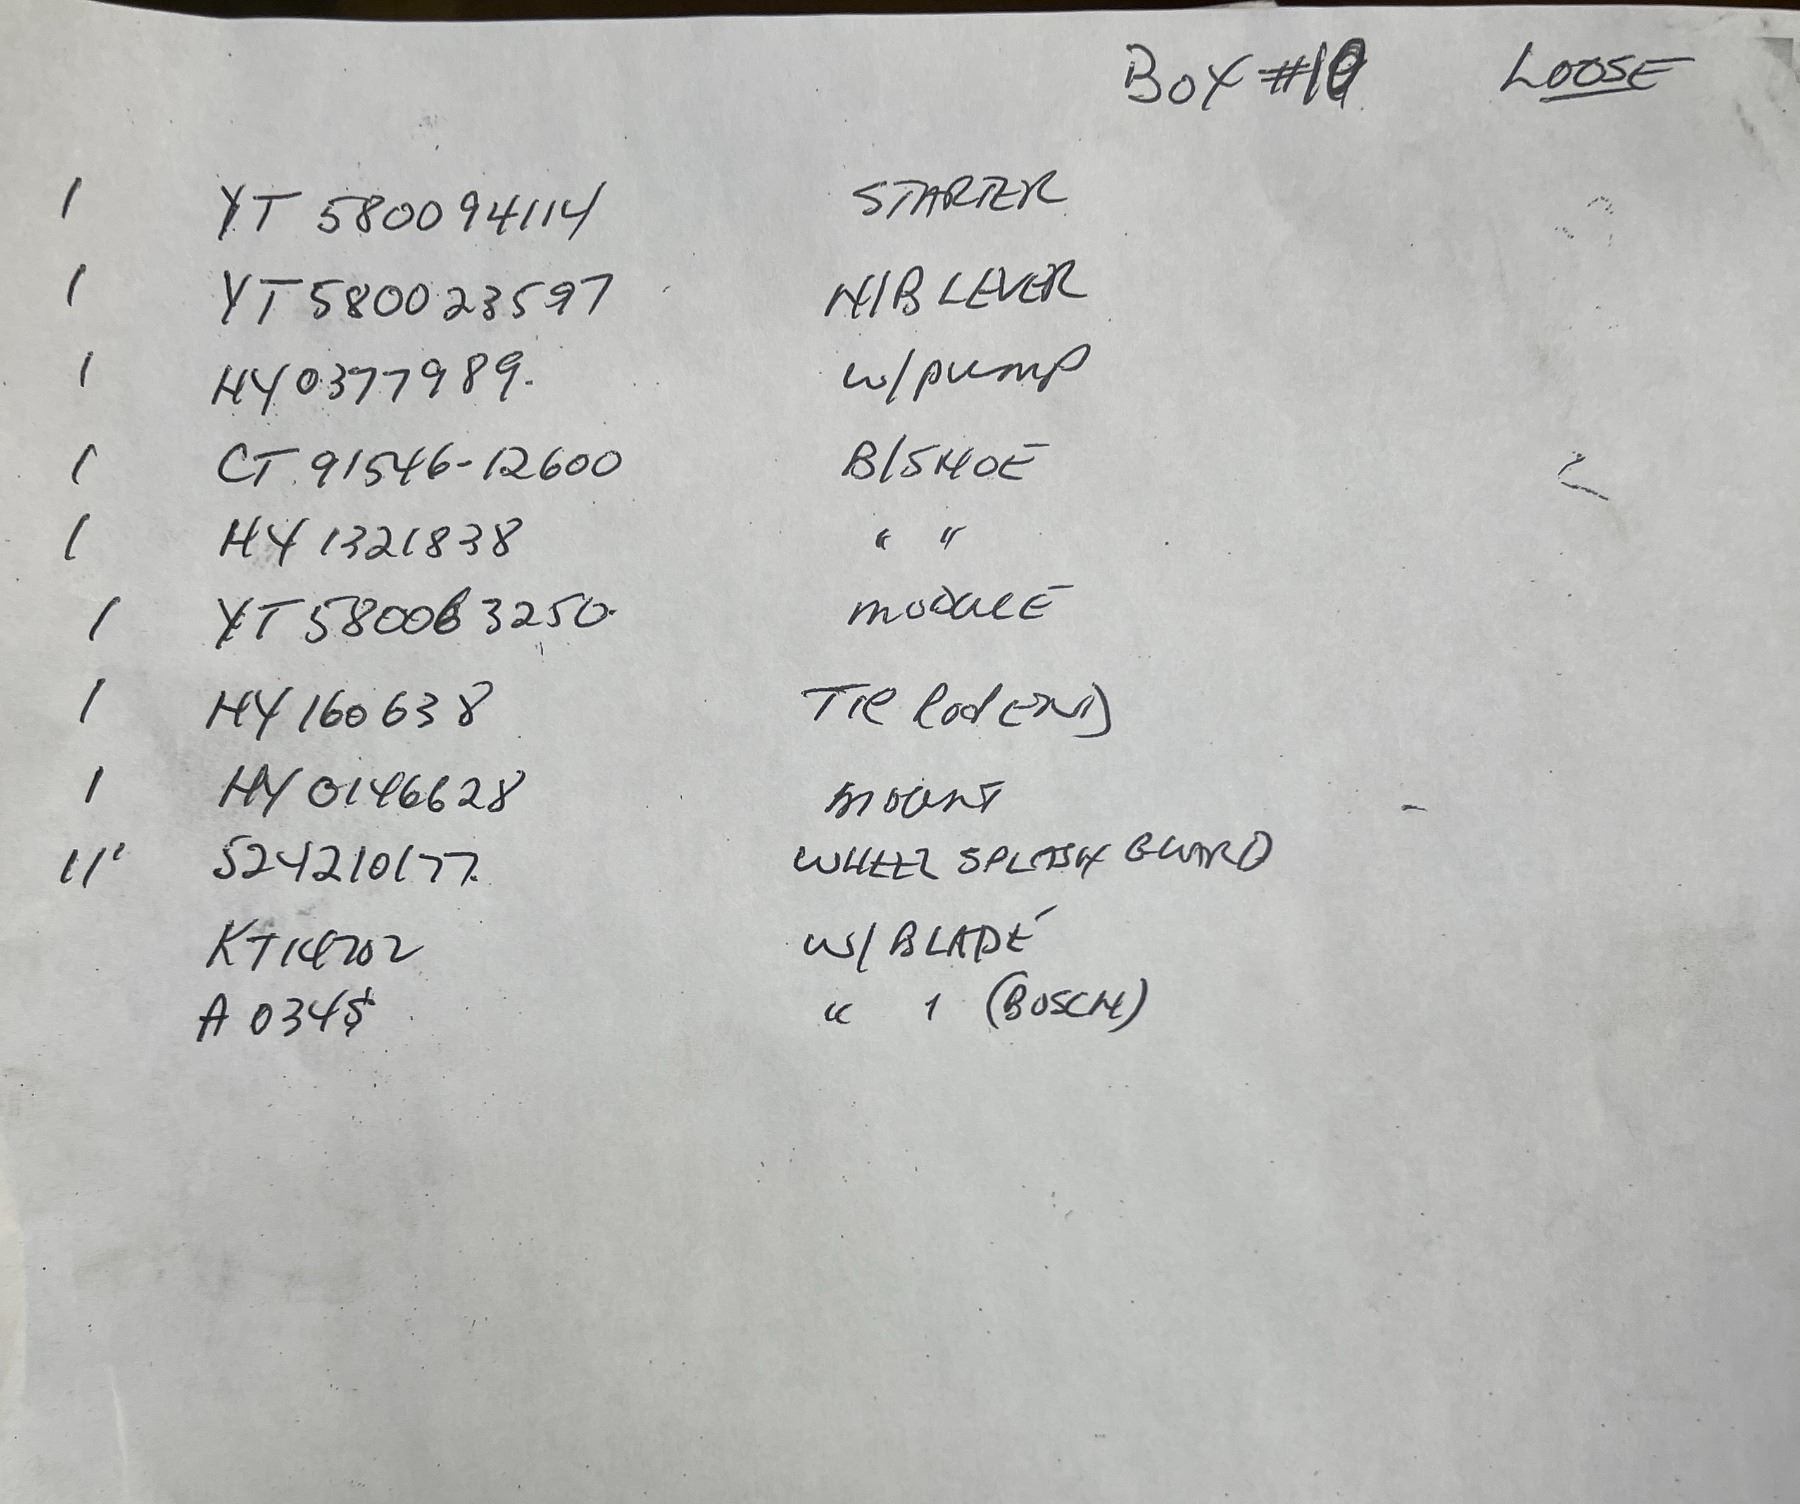 BOX #10 LOOSE
1 YT 580094114 STARTER
1 YT 580023597 H/B LEVER
1 HY 0377989. W/PUMP
1 CT 91546-12600 B/SHOE
1 HY 1321838 " "
1 YT 580063250 MODULE
1 HY 160638 TIE Rod END
1 HY 0146628 MOUNT
11' 524210177. WHEEL SPLASH GUARD
KT14702 W/ BLADE
A 034 " 1 (BOSCH)